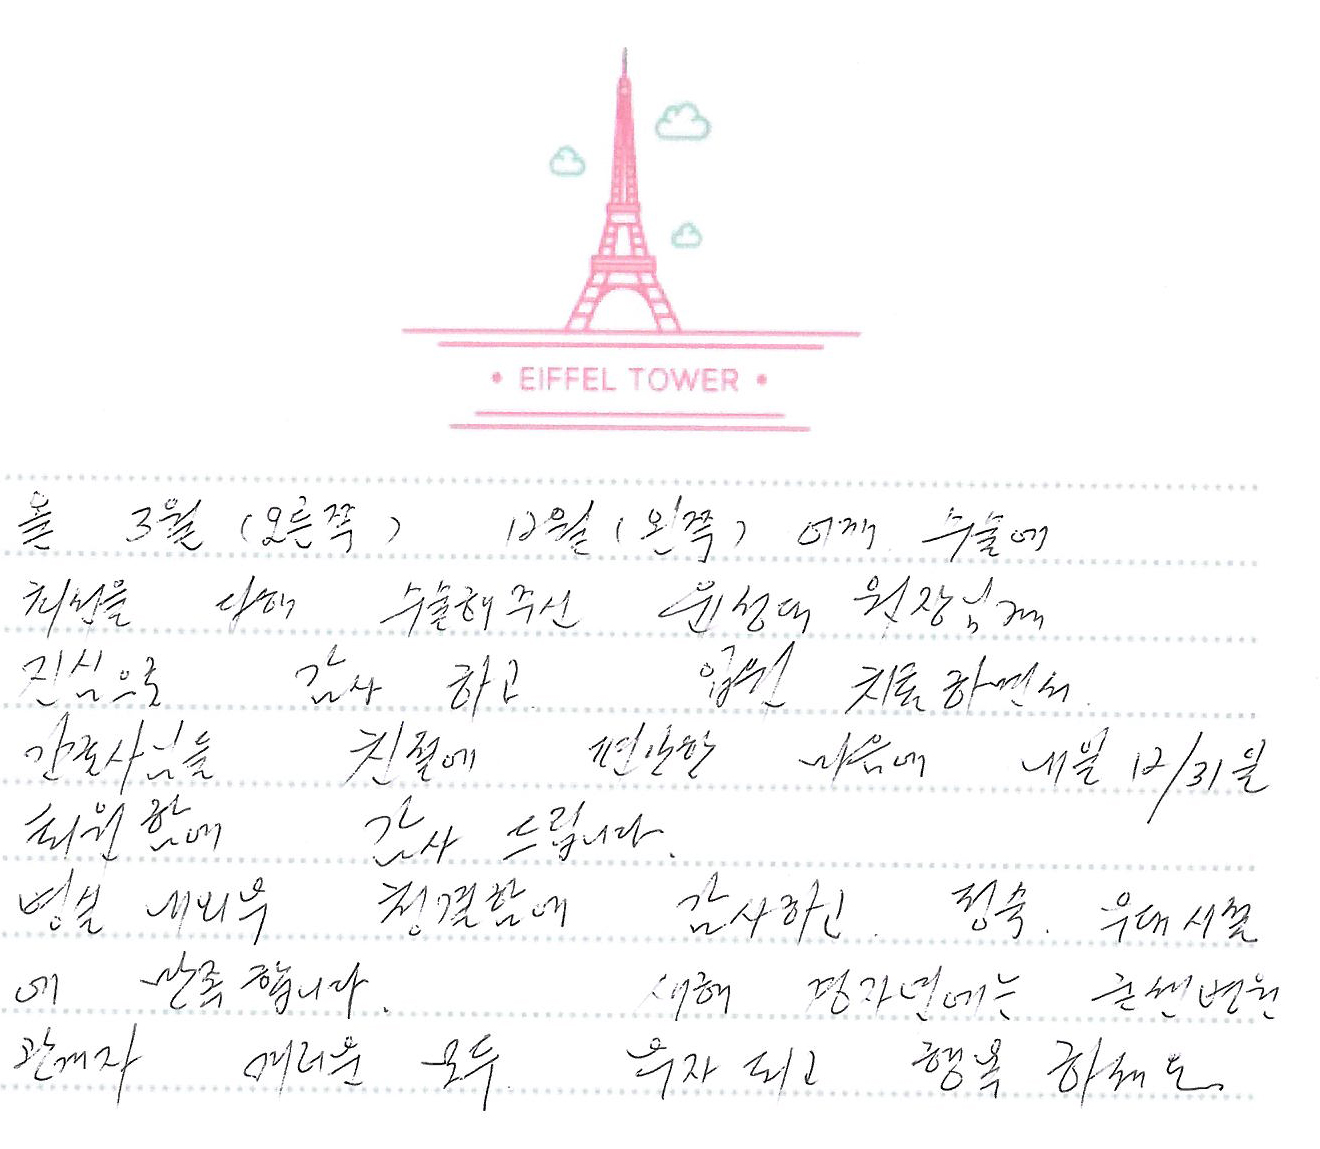 • EIFFEL TOWER •
올 3월 (오른쪽) 12월 (왼쪽) 어깨. 수술에
최선을 다해 수술해 주신 윤성대 원장님께
진심으로 감사 하고. 입원 치료하면서.
간호사님들 친절에 편안한 마음에 내일 12/31일
퇴원함에 감사 드립니다.
병실 내외부 청결함에 감사하고. 정숙. 부대시설
에 만족 합니다. 새해 경자년에는 병원
관계자 여러분 모두. 부자 되고 행복 하세요.